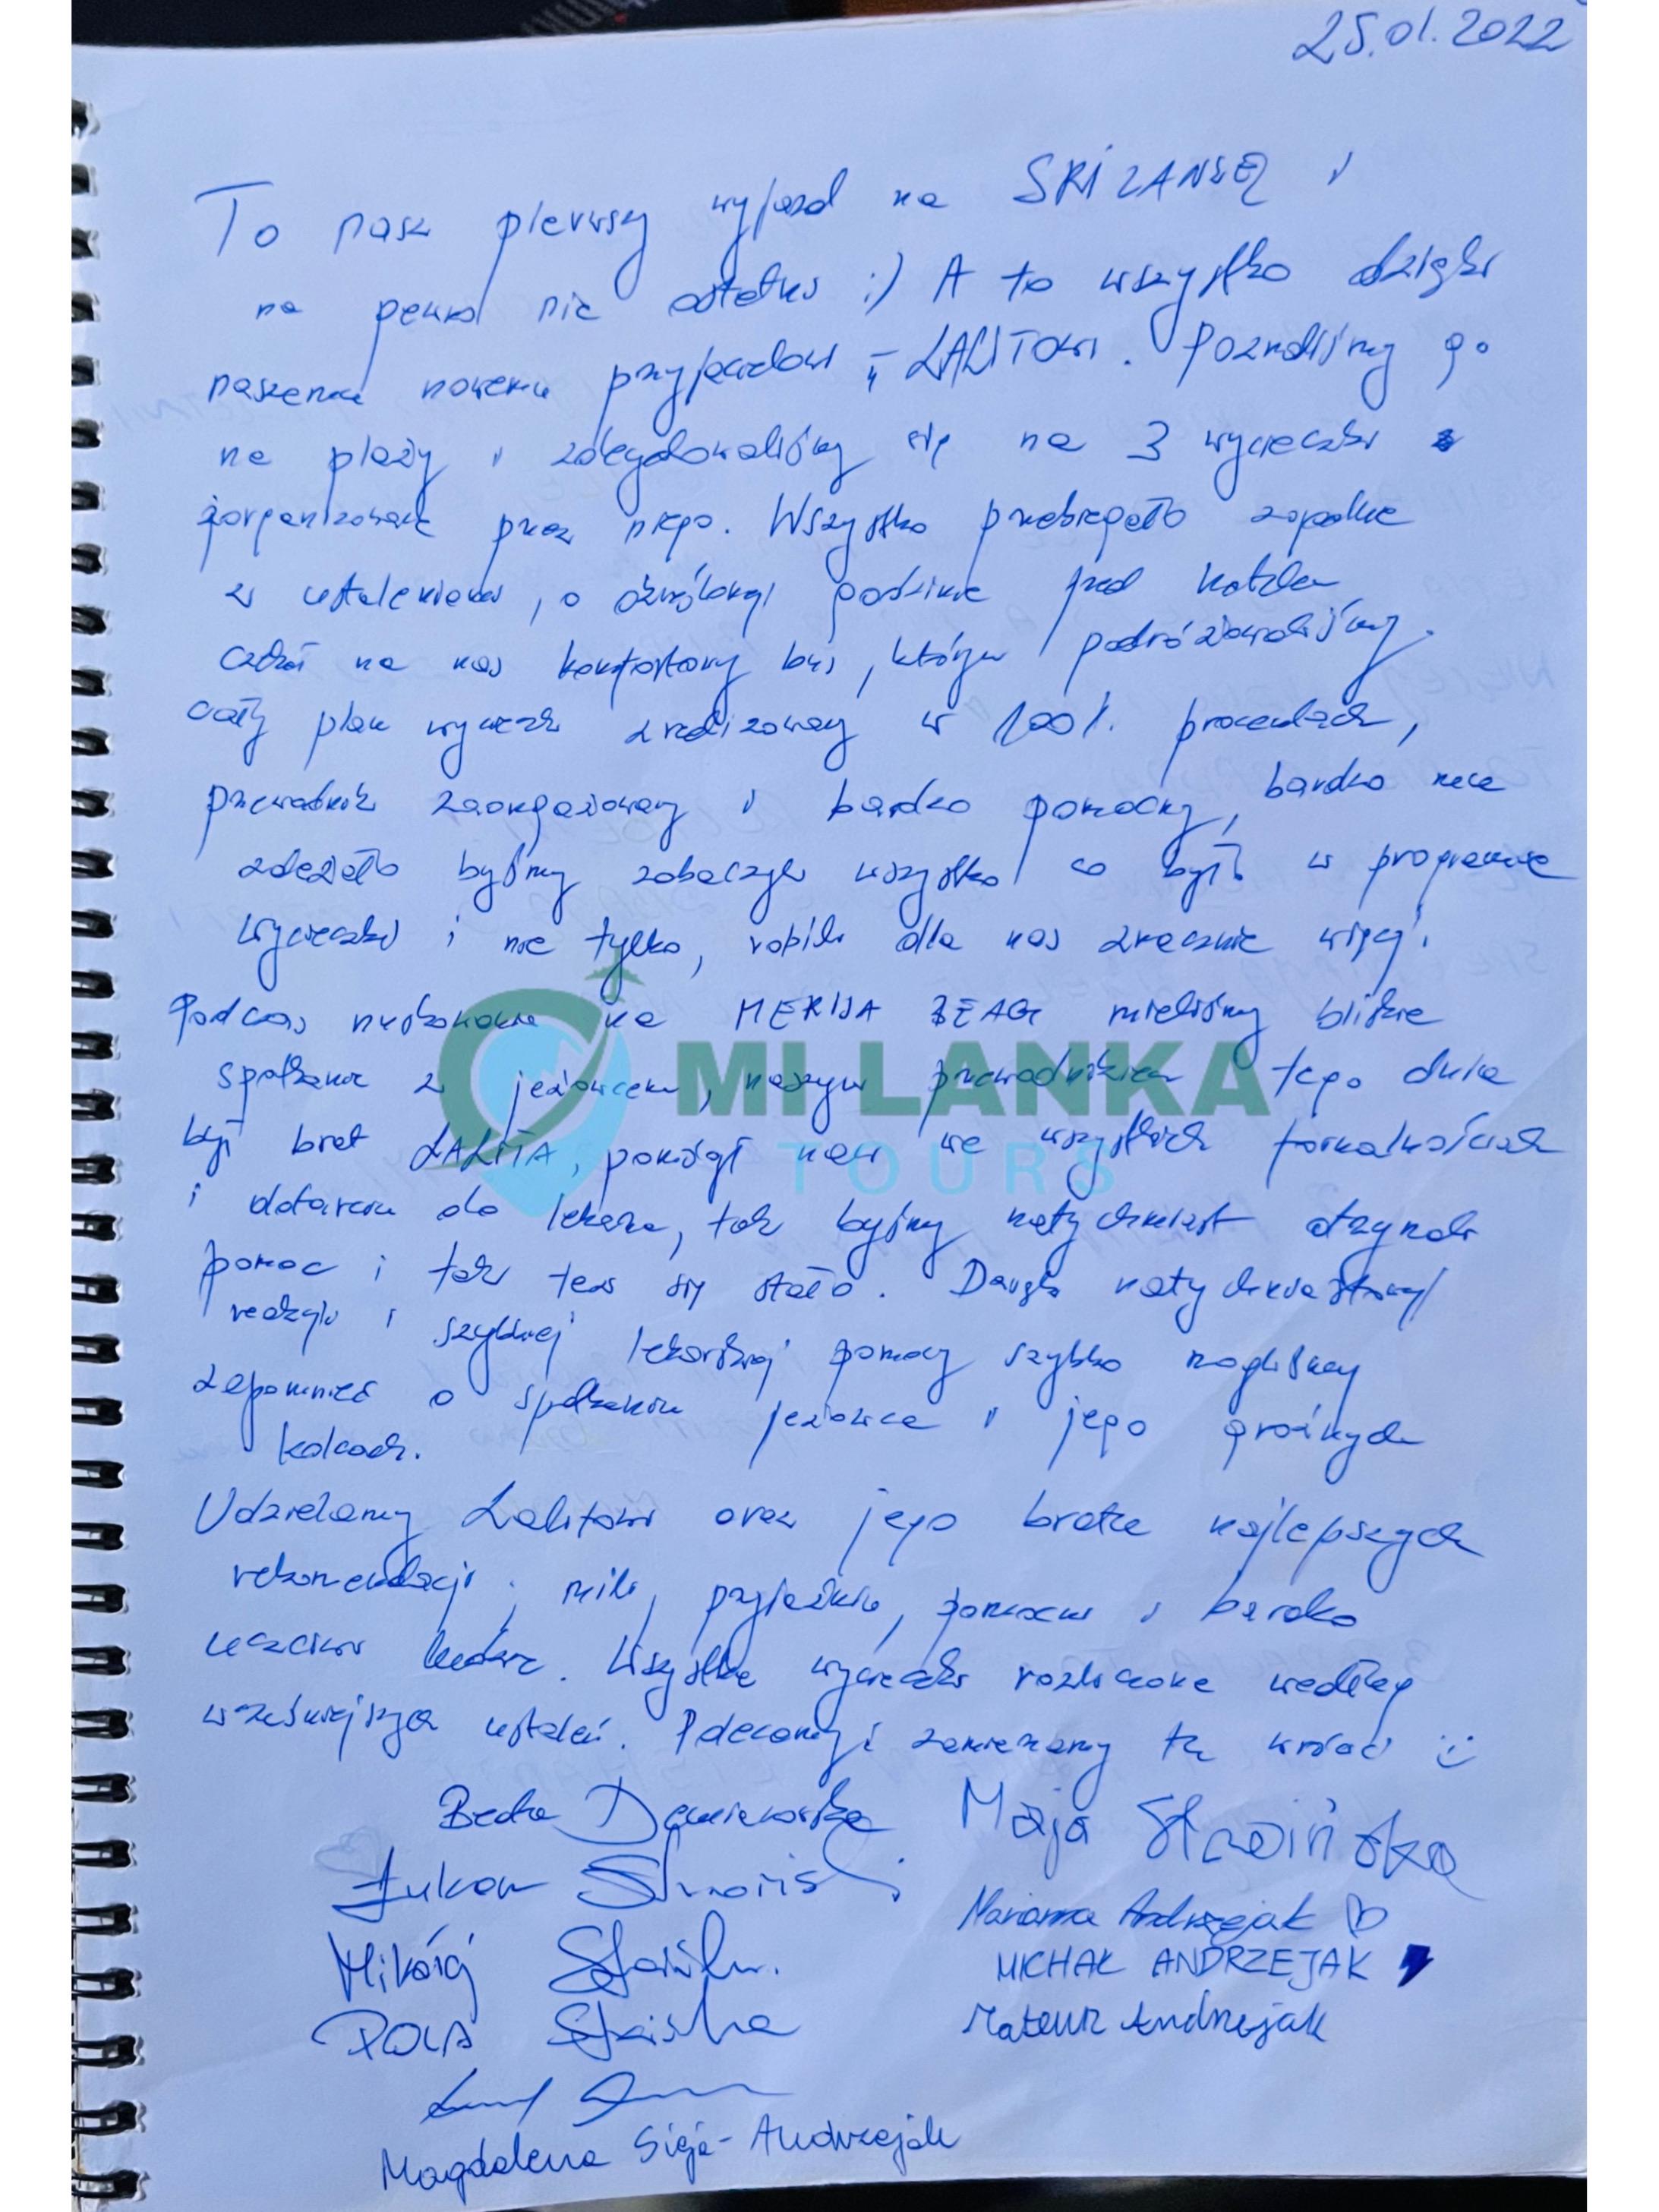 25.01.2022
To nasz pierwszy wyjazd na SRI LANKĘ i
na pewno nie ostatni :) A to wszystko dzięki
naszemu nowemu przyjacielowi - LALITOWI. Poznaliśmy go
na plaży i zdecydowaliśmy się na 3 wycieczki
zorganizowane przez niego. Wszystko przebiegało zgodnie
z ustaleniami, o określonej godzinie pod hotelem
czekał na nas komfortowy bus, którym podróżowaliśmy.
Cały plan wycieczki zrealizowany w 100%. procentach,
przewodnik zaangażowany i bardzo pomocny, bardzo mu
zależało byśmy zobaczyli wszystko co było w programie
wycieczki i nie tylko, robili dla nas znacznie więcej.
Podczas nurkowania na MIRISA BEAG mieliśmy bliskie
MI LANKA
TOURS
spotkanie z jeżowcem, naszym przewodnikiem tego dnia
był brat LALITA, pomógł nam we wszystkich formalnościach
i dotarciu do lekarza, tak byśmy natychmiast otrzymali
pomoc i tak też się stało. Dzięki natychmiastowej
reakcji i szybkiej lekarskiej pomocy szybko mogliśmy
zapomnieć o spotkaniu jeżowca i jego groźnych
kolcach.
Udzielamy Lalitowi oraz jego bratu najlepszych
rekomendacji; mili, przyjaźni, pomocni i bardzo
uczciwi ludzie. Wszystkie wycieczki rozliczone według
wcześniejszych ustaleń. Polecamy i zamierzamy tu wrócić :)
Beata
Maja
Łukasz
Marianna Andrzejak
Mikołaj
MICHAŁ ANDRZEJAK
POLA
Mateusz Andrzejak
Magdalena Andrzejak